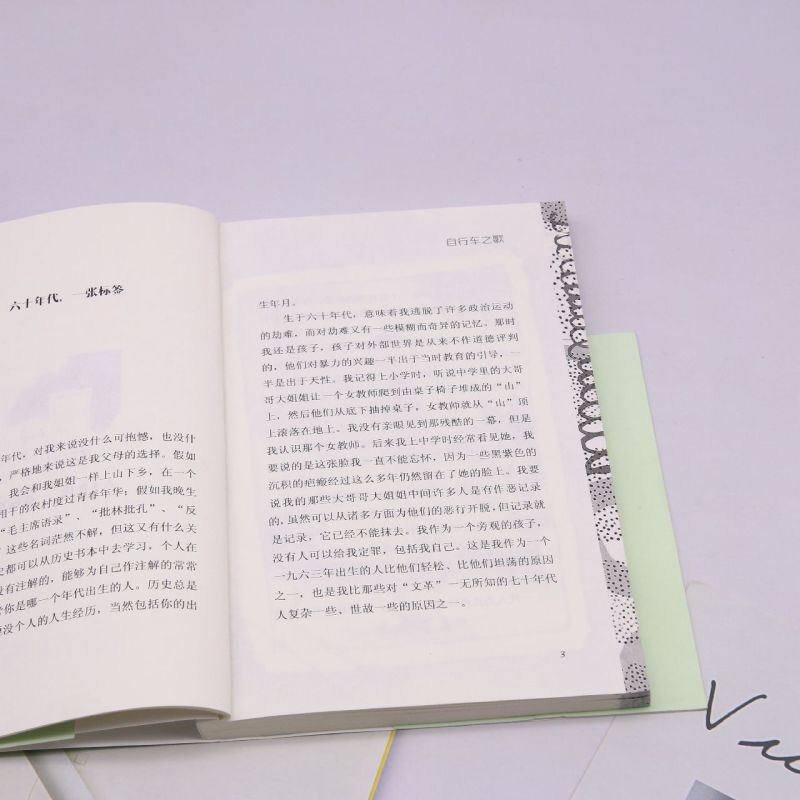 六十年代，一张标签
年代，对我来说没什么可抱憾，也没什
，严格地来说这是我父母的选择。假如
，我会和我姐姐一样上山下乡，在一个
相干的农村度过青春年华；假如我晚生
“毛主席语录”、“批林批孔”、“反
”这些名词茫然不解，但这又有什么关
史都可以从历史书本中去学习，个人在
没有注解的，能够为自己作注解的常常
你是哪一个年代出生的人。历史总是
没个人的人生经历，当然包括你的出
自行车之歌
生年月。
生于六十年代，意味着我逃脱了许多政治运动
的劫难，而对劫难又有一些模糊而奇异的记忆。那时
我还是孩子，孩子对外部世界是从来不作道德评判
的，他们对暴力的兴趣一半出于当时教育的引导，一
半是出于天性。我记得上小学时，听说中学里的大哥
哥大姐姐让一个女教师爬到由桌子椅子堆成的“山”
上，然后他们从底下抽掉桌子，女教师就从“山”顶
上滚落在地上。我没有亲眼见到那残酷的一幕，但是
我认识那个女教师。后来我上中学时经常看见她，我
要说的是这张脸我一直不能忘怀，因为一些黑紫色的
沉积的疤瘢经过这么多年仍然留在了她的脸上。我要
说我的那些大哥哥大姐姐中间许多人是有作恶记录
的，虽然可以从诸多方面为他们的恶行开脱，但记录就
是记录，它已经不能抹去。我作为一个旁观的孩子，
没有人可以给我定罪，包括我自己。这是我作为一个
一九六三年出生的人比他们轻松、比他们坦荡的原因
之一，也是我比那些对“文革”一无所知的七十年代
人复杂一些、世故一些的原因之一。
3